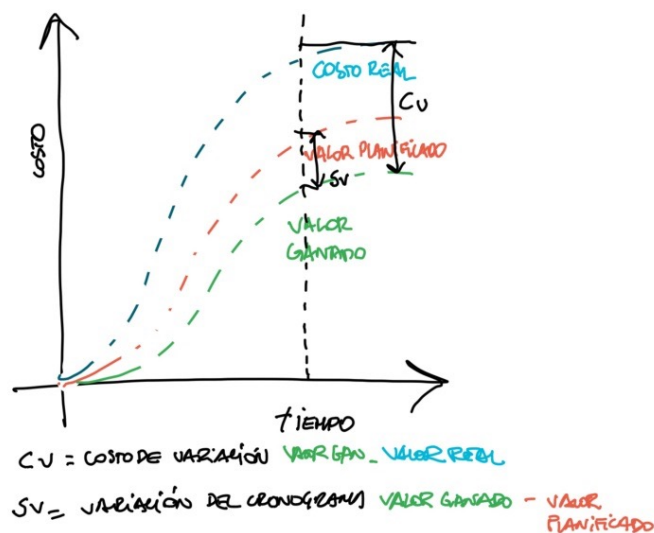 COSTO
COSTO REAL
CV
VALOR PLANIFICADO
SV
VALOR
GANTADO
TIEMPO
CV = COSTO DE VARIACIÓN VALOR GAN - VALOR REAL
SV = VARIACIÓN DEL CRONOGRAMA VALOR GANADO - VALOR
PLANIFICADO